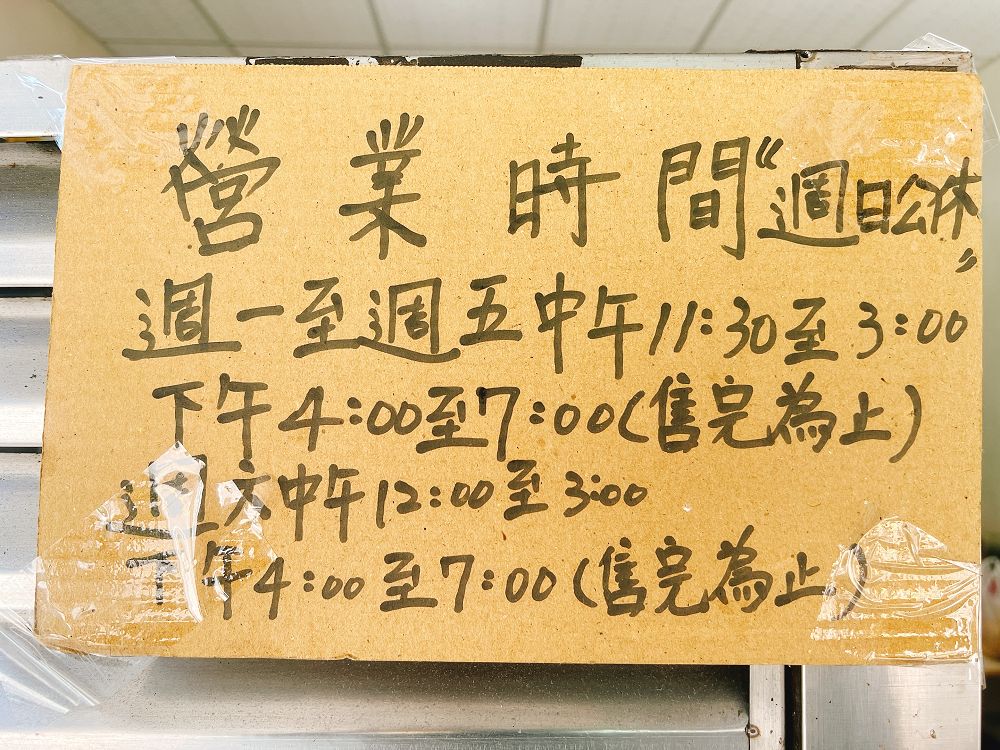 營業時間"週日公休"
週一至週五中午11:30至3:00
下午4:00至7:00(售完為止)
週六中午12:00至3:00
下午4:00至7:00(售完為止)